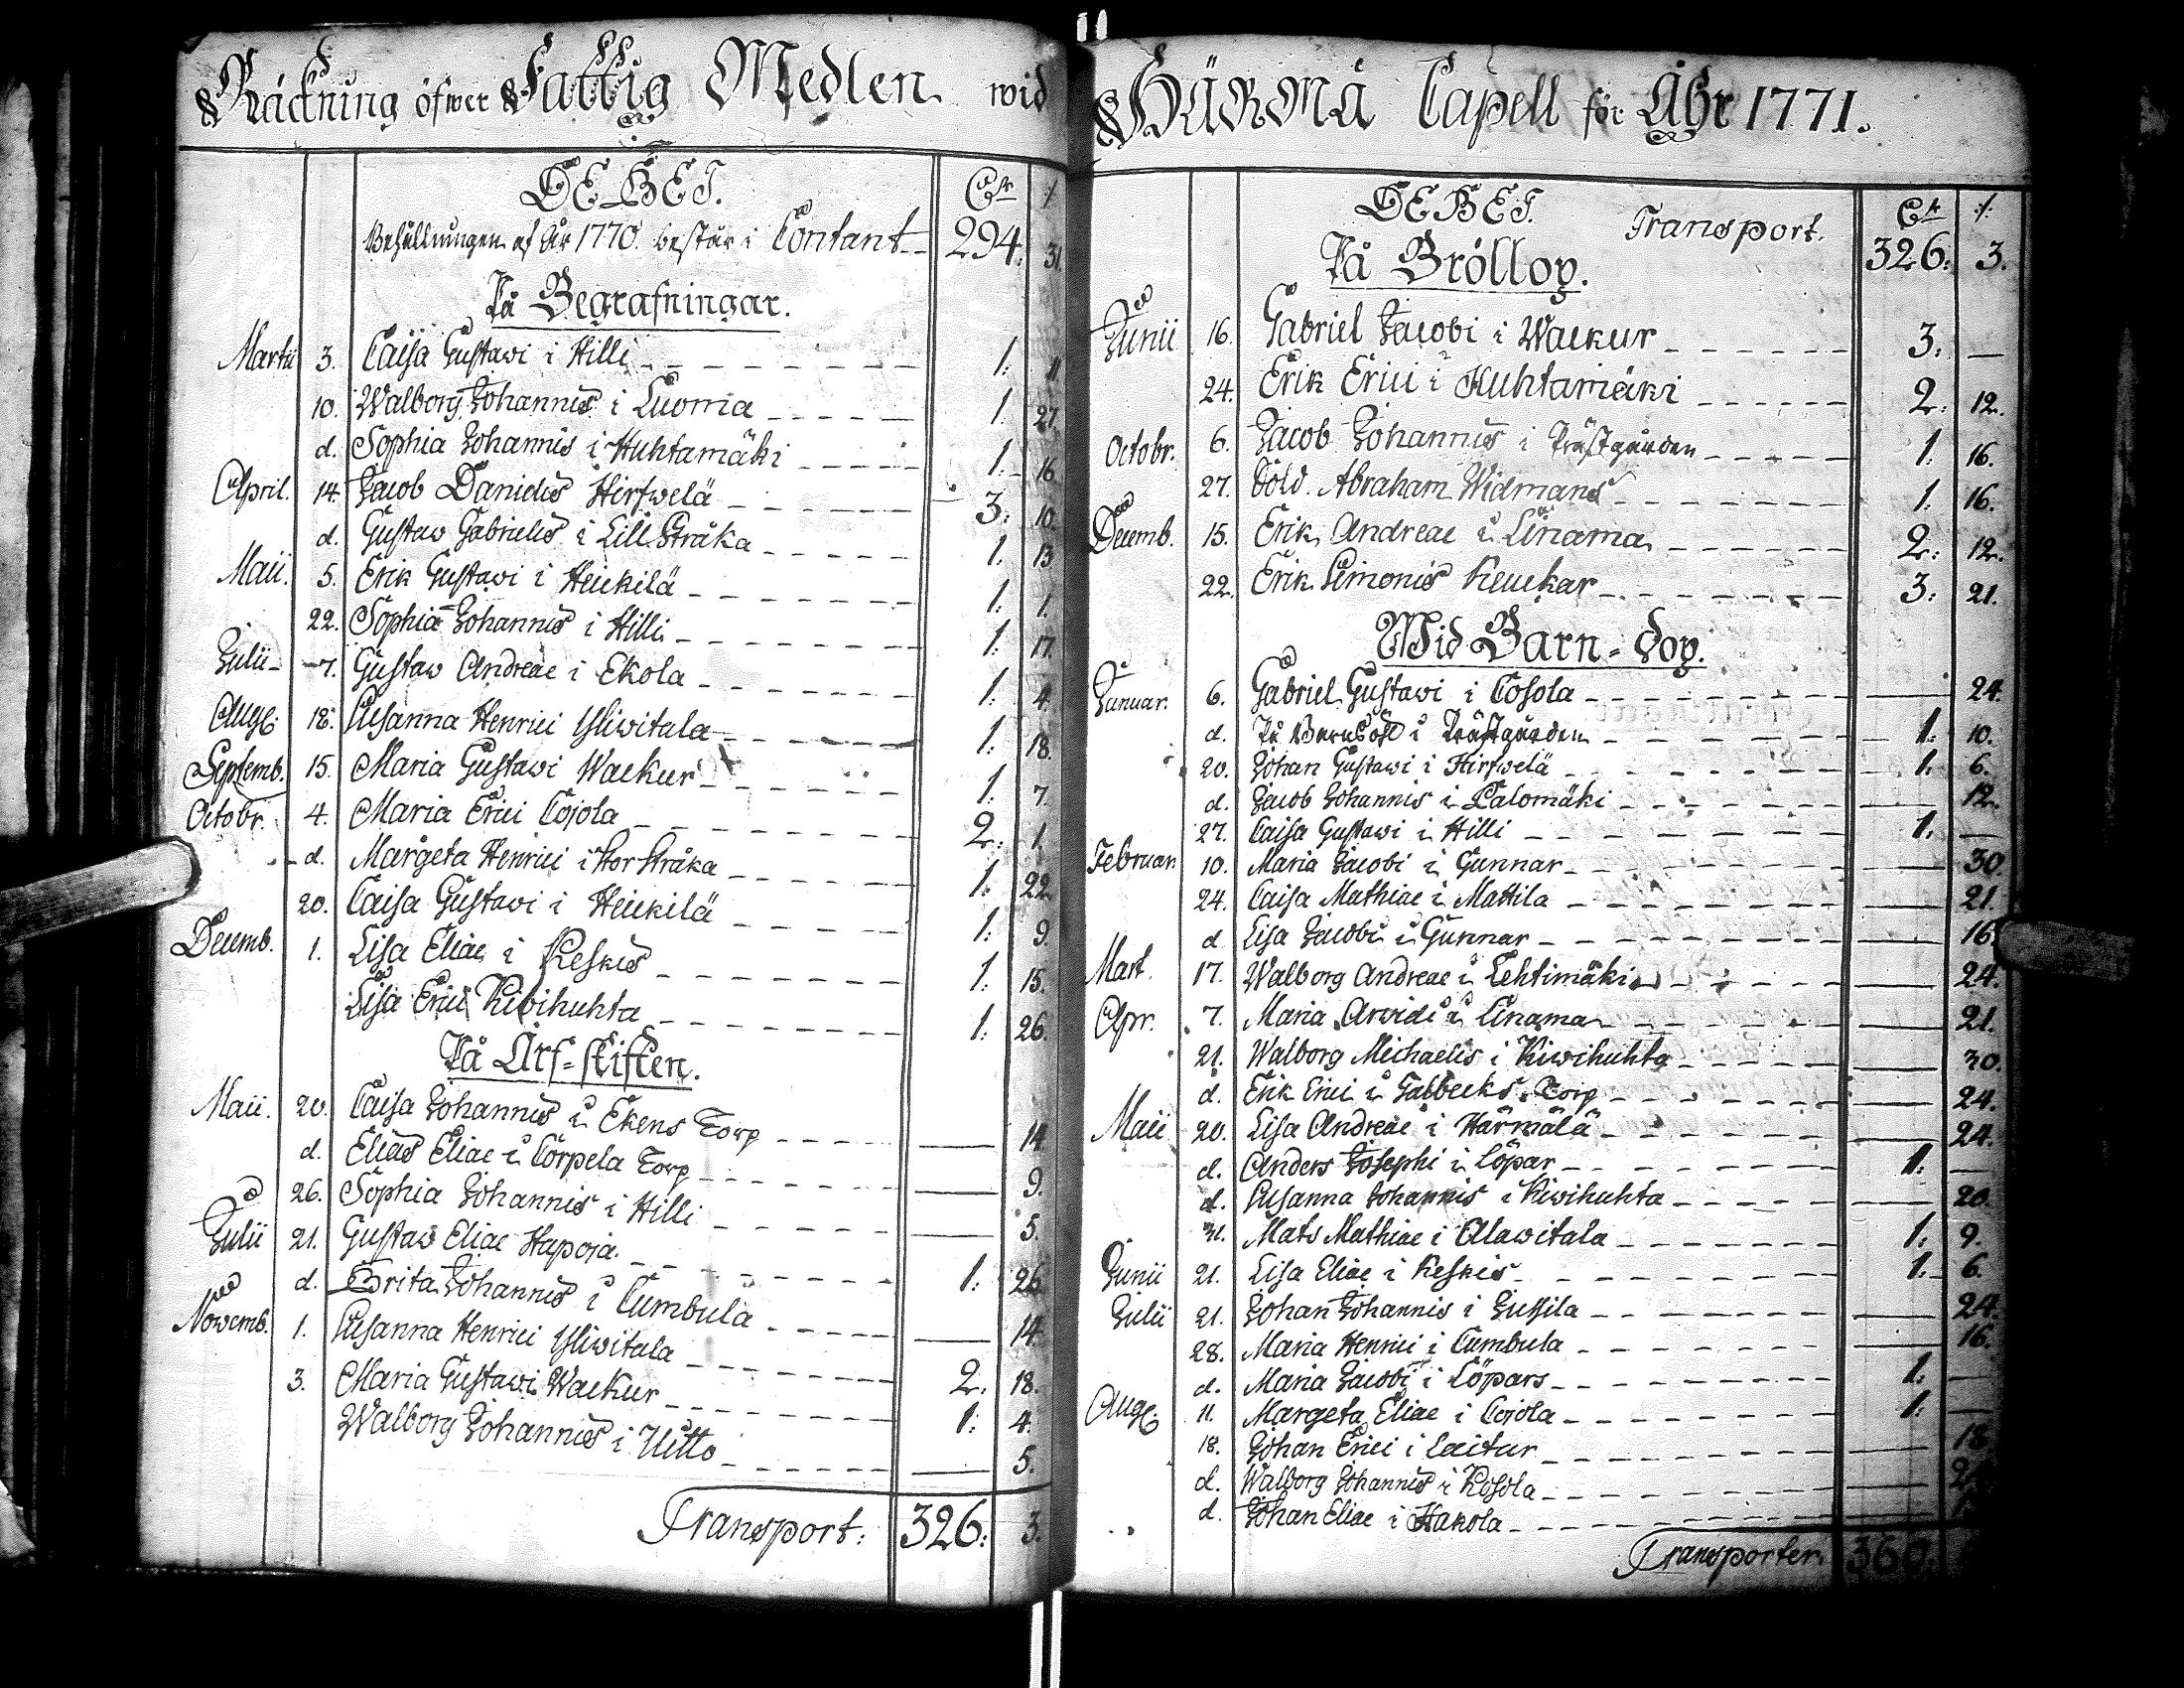 Räckning öfwer Fattig Medlen wid
DEBET. Cr ./.
Behållningen af År 1770. består i Contant 294: 31.
På Begrafningar.
Martii 3. Caisa Gustawi i Hilli 1: 11
10. Walborg Johannis i Luoma 1: 27.
d. Sophia Johannis i Huhtamäki 1: 16
April. 14. Jacob Danielis Hirfwelä 3: 10.
d. Gustaw Gabrielis i Lill Stråka 1: 13
Maii. 5. Erik Gustawi i Heickilä 1: 1.
22. Sophia Johannis i Hilli 1: 17.
Julii 7. Gustaw Andreae i Ekola 1: 4.
Aug. 18. Susanna Henrici Yliwitala 1: 18.
Septemb. 15. Maria Gustawi Wackur 1: 7.
Octobr. 4. Maria Erici Cojola 2: 1.
d. Margeta Henrici i Stor Stråka 1: 22
20. Caisa Gustawi i Heickilä 1: 9.
Decemb. 1. Lisa Eliae i Keskis 1: 15.
Lisa Erici Kivihuhta 1: 26.
På Arf-skiften.
Maii. 20. Caisa Johannis i Ekens Torp — 14
d. Elias Eliae i Torpela Torp — 9.
26. Sophia Johannis i Hilli — 5.
Julii 21. Gustaw Eliae Hapoja. 1: 26.
d. Brita Johannis i Cumbula — 14.
Nowemb. 1. Susanna Henrici Yliwitala 2: 18.
3. Maria Gustawi Wackur 1: 4.
Walborg Johannis i Uitto — 5.
Transport: 326: 3.
HÄRMÄ Capell för Åhr 1771.
DEBET. Transport. Cr ./.
På Bröllop. 326: 3.
Junii 16. Gabriel Jacobi i Wackur 3: —
24. Erik Erici i Huhtamäki 2: 12.
Octobr. 6. Jacob Johannis i Prästgården 1: 16.
27. Sold. Abraham Widmans 1: 16.
Decemb. 15. Erik Andreae i Linama 2: 12.
22. Erik Simonis Keuckar 3: 21.
Wid Barn-Dop.
Januar. 6. Gabriel Gustawi i Cosola — 24.
d. På Barnsöhl i Prästgården 1: 10.
20. Johan Gustawi i Hirfwelä 1: 6.
d. Jacob Johannis i Salomäki — 12.
27. Caisa Gustawi i Hilli 1: —
Februar. 10. Maria Jacobi i Gunnar — 30
24. Caisa Mathiae i Mattila — 21.
d Lisa Jacobi i Gunnar — 16.
Mart. 17. Walborg Andreae i Lehtimäki — 24.
Apr. 7. Maria Arvidi i Linama — 21.
21. Walborg Michaelis i Kiwihuhta — 30.
d. Erik Erici i Galbecks Torp — 24.
Maii 20. Lisa Andreae i Härmälä — 24.
d. Anders Josephi i Löpar 1: —
d. Susanna Johannis i Kiwihuhta — 20.
31. Mats Mathiae i Alawitala 1: 9.
Junii 21. Lisa Eliae i Keskis 1: 6.
Julii 21. Johan Johannis i Jussila — 24.
28. Maria Henrici i Cumbula — 16.
d. Maria Jacobi i Löpars 1: —
Aug. 11. Margeta Eliae i Cojola 1: —
18. Johan Erici i Laitur — 18
d. Walborg Johannis i Kosola —
d. Johan Eliae i Hakola —
Transporter. 360.